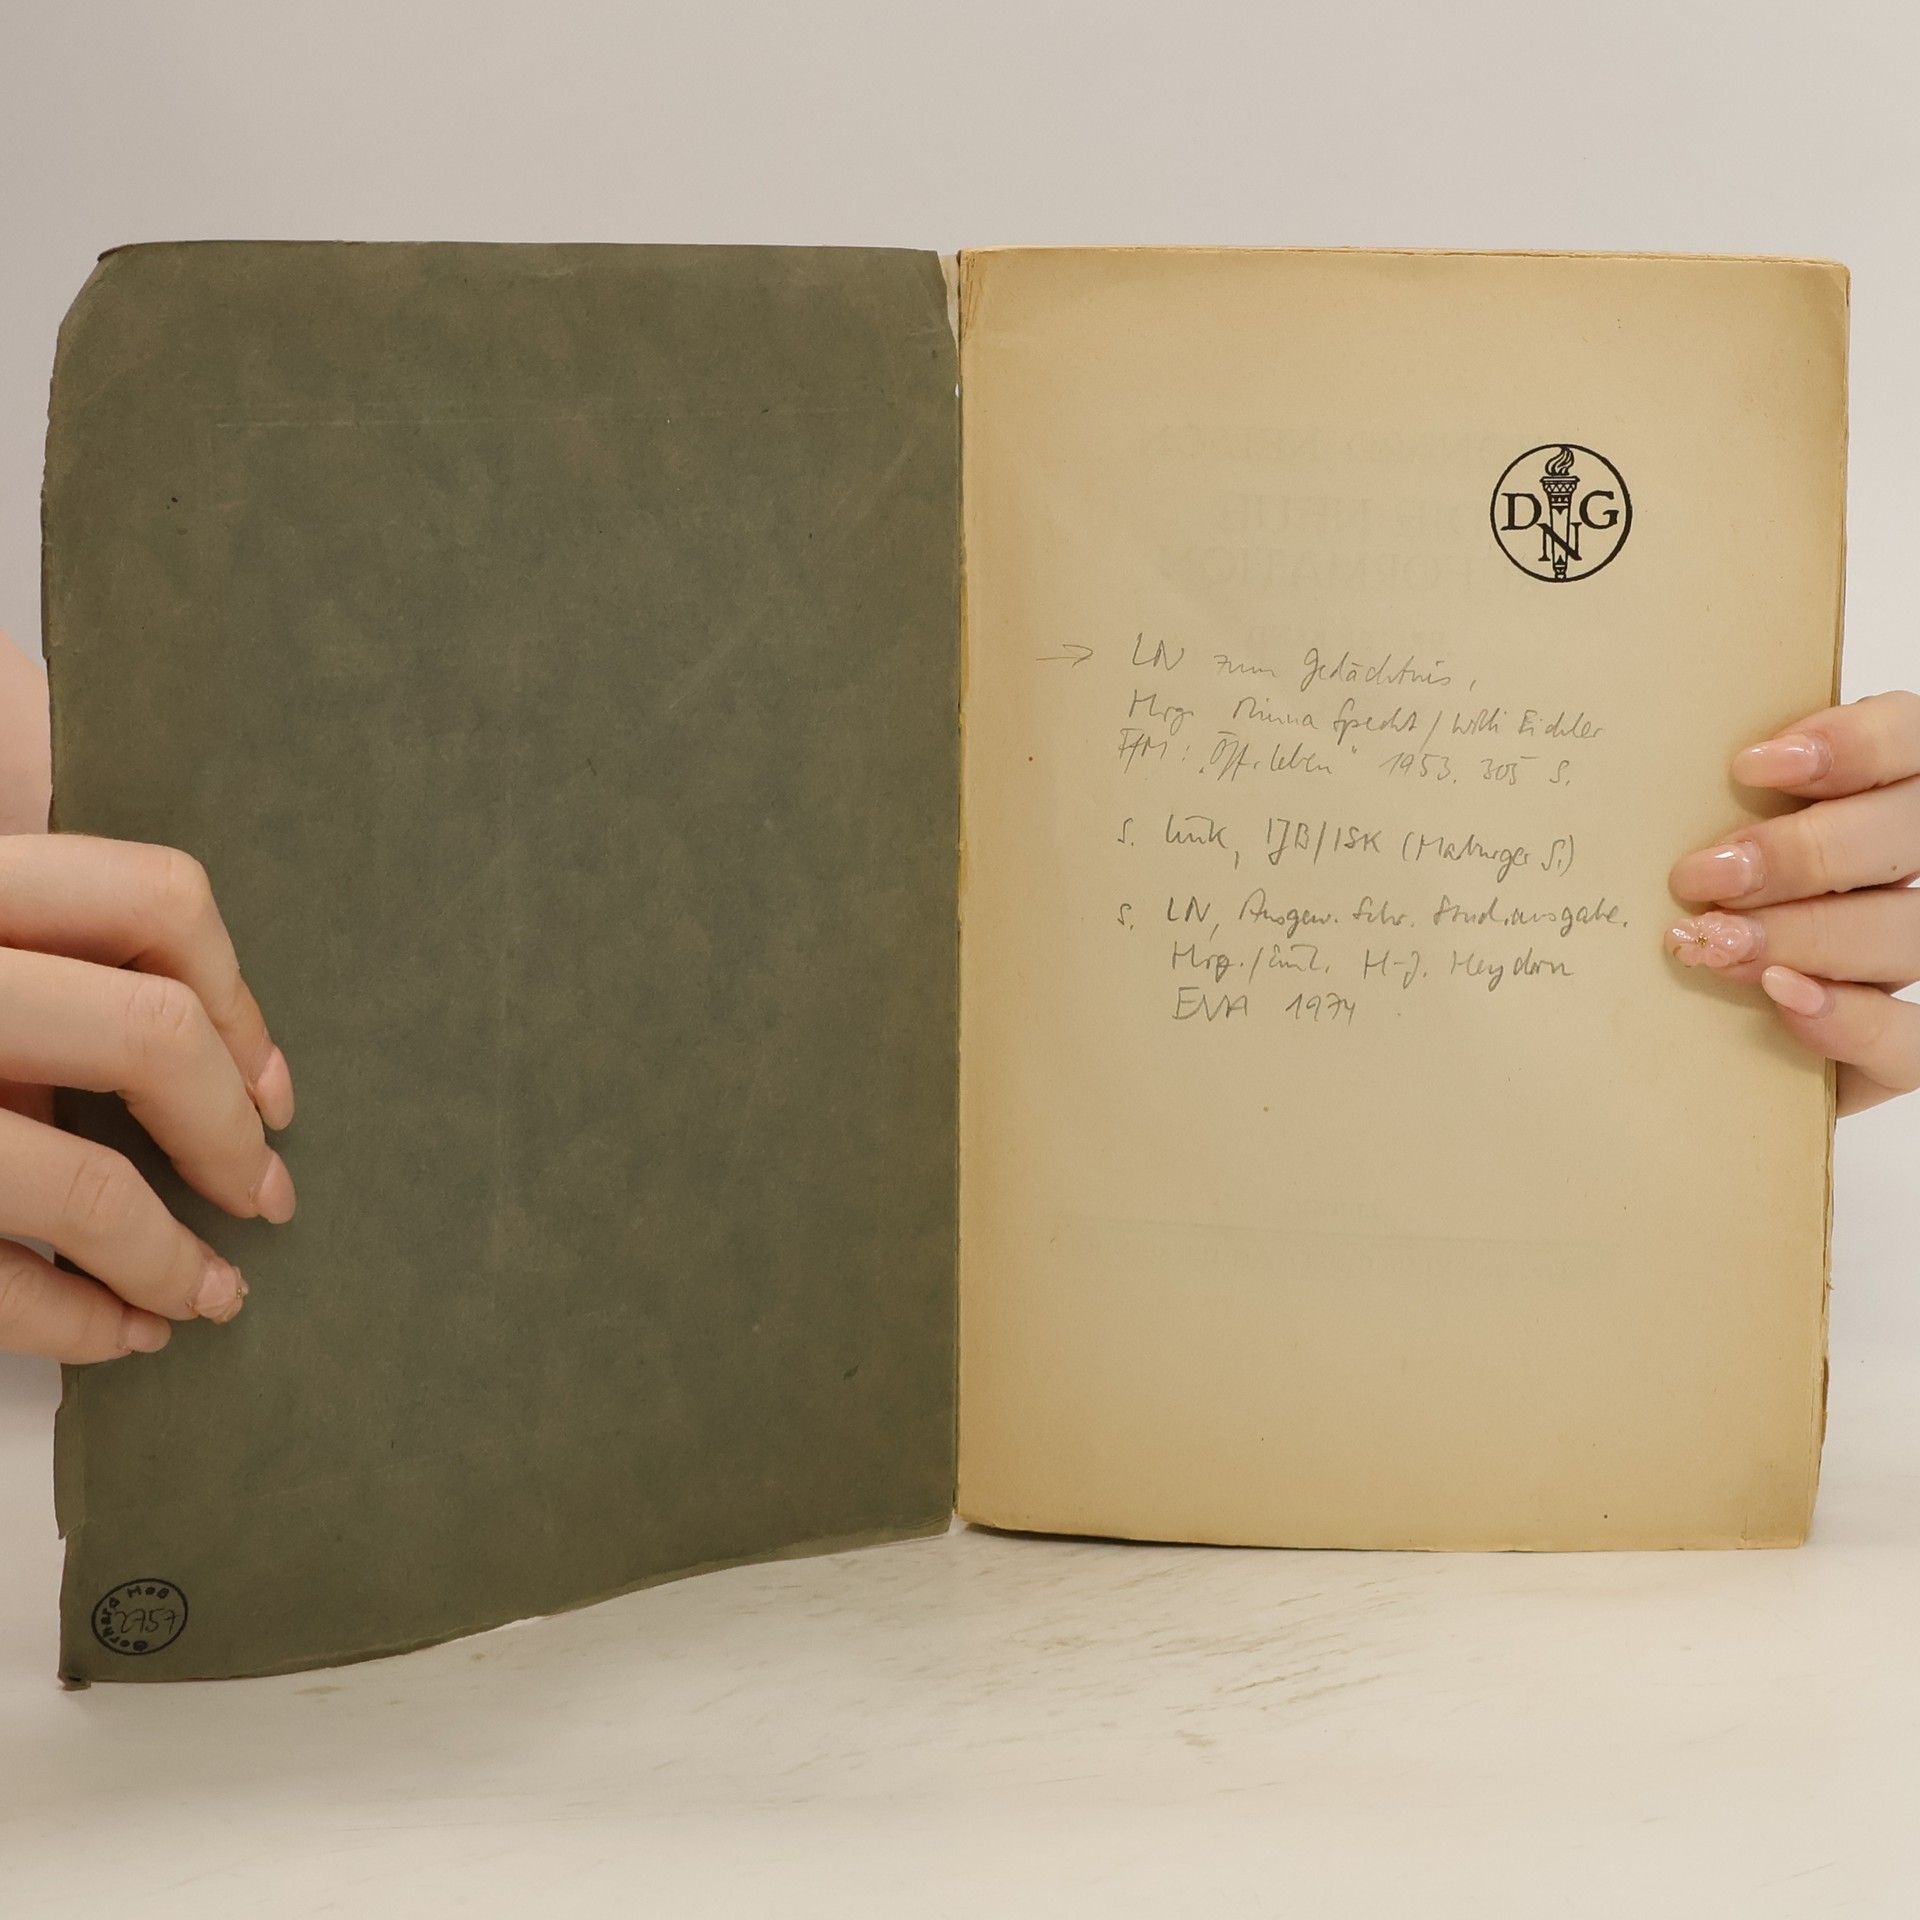 D N G
→ LN zum Gedächtnis,
Hrg. Minna Specht / Willi Eichler
FfM: "Öff. Leben" 1953. 305 S.
s. Link, IJB/ISK (Marburger S.)
s. LN, Ausgew. Schr. Studienausgabe.
Hrg./Einl. H-J. Heydorn
EVA 1974
2757